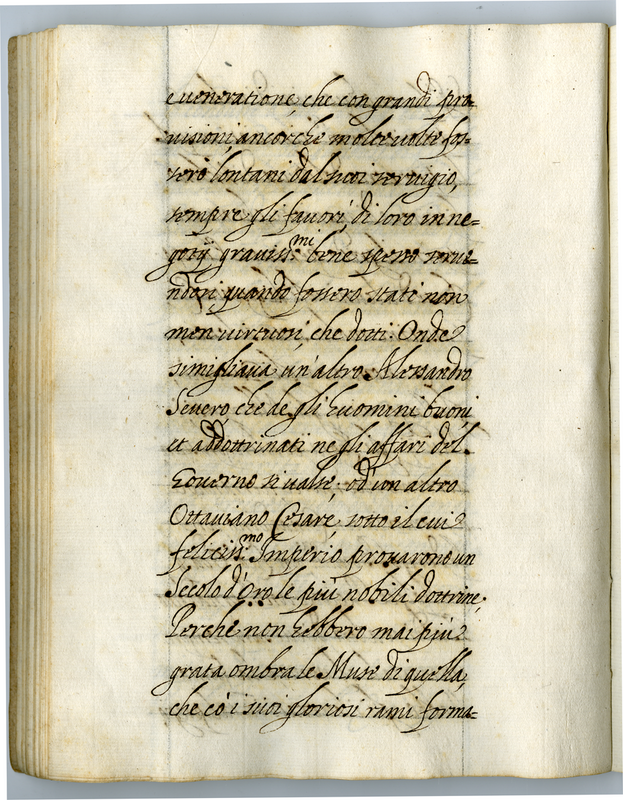 e ueneratione, che con grandi pro=
uisioni, ancorche molte uolte fos=
sero lontani dal suoi seruigio,
sempre gli fauorì, di loro in ne=
gotij grauiss.mi bene spesso serue=
ndosi quando fossero stati non
men uirtuosi, che dotti. Onde
simigliaua un'altro Alessandro
Seuero che de gli huomini buoni
et addottrinati ne gli affari del
Gouerno si ualse; od'un altro
Ottauiano Cesare, sotto il cui
feliciss.mo Imperio prouarono un
Secolo d'Oro le più nobili dottrine.
Perche non hebbero mai più
grata ombra le Muse di quella,
che cò i suoi gloriosi rami forma=